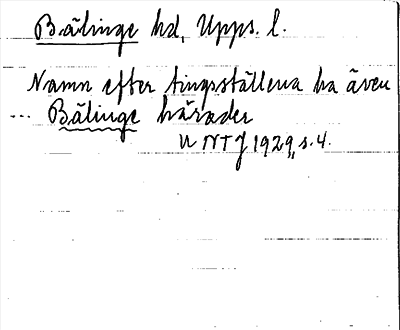 Bälinge hd, Upps. l.
Namn efter tingsställena ha även
... Bälinge härader
NTJ 1929, s. 4.